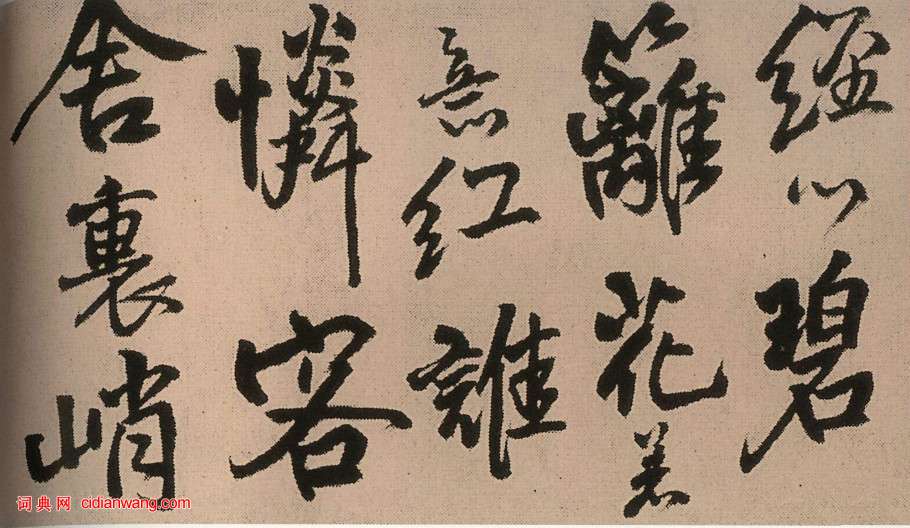 經心碧
籬花著
意紅誰
憐客
舍裏峭
词典网 cidianwang.com